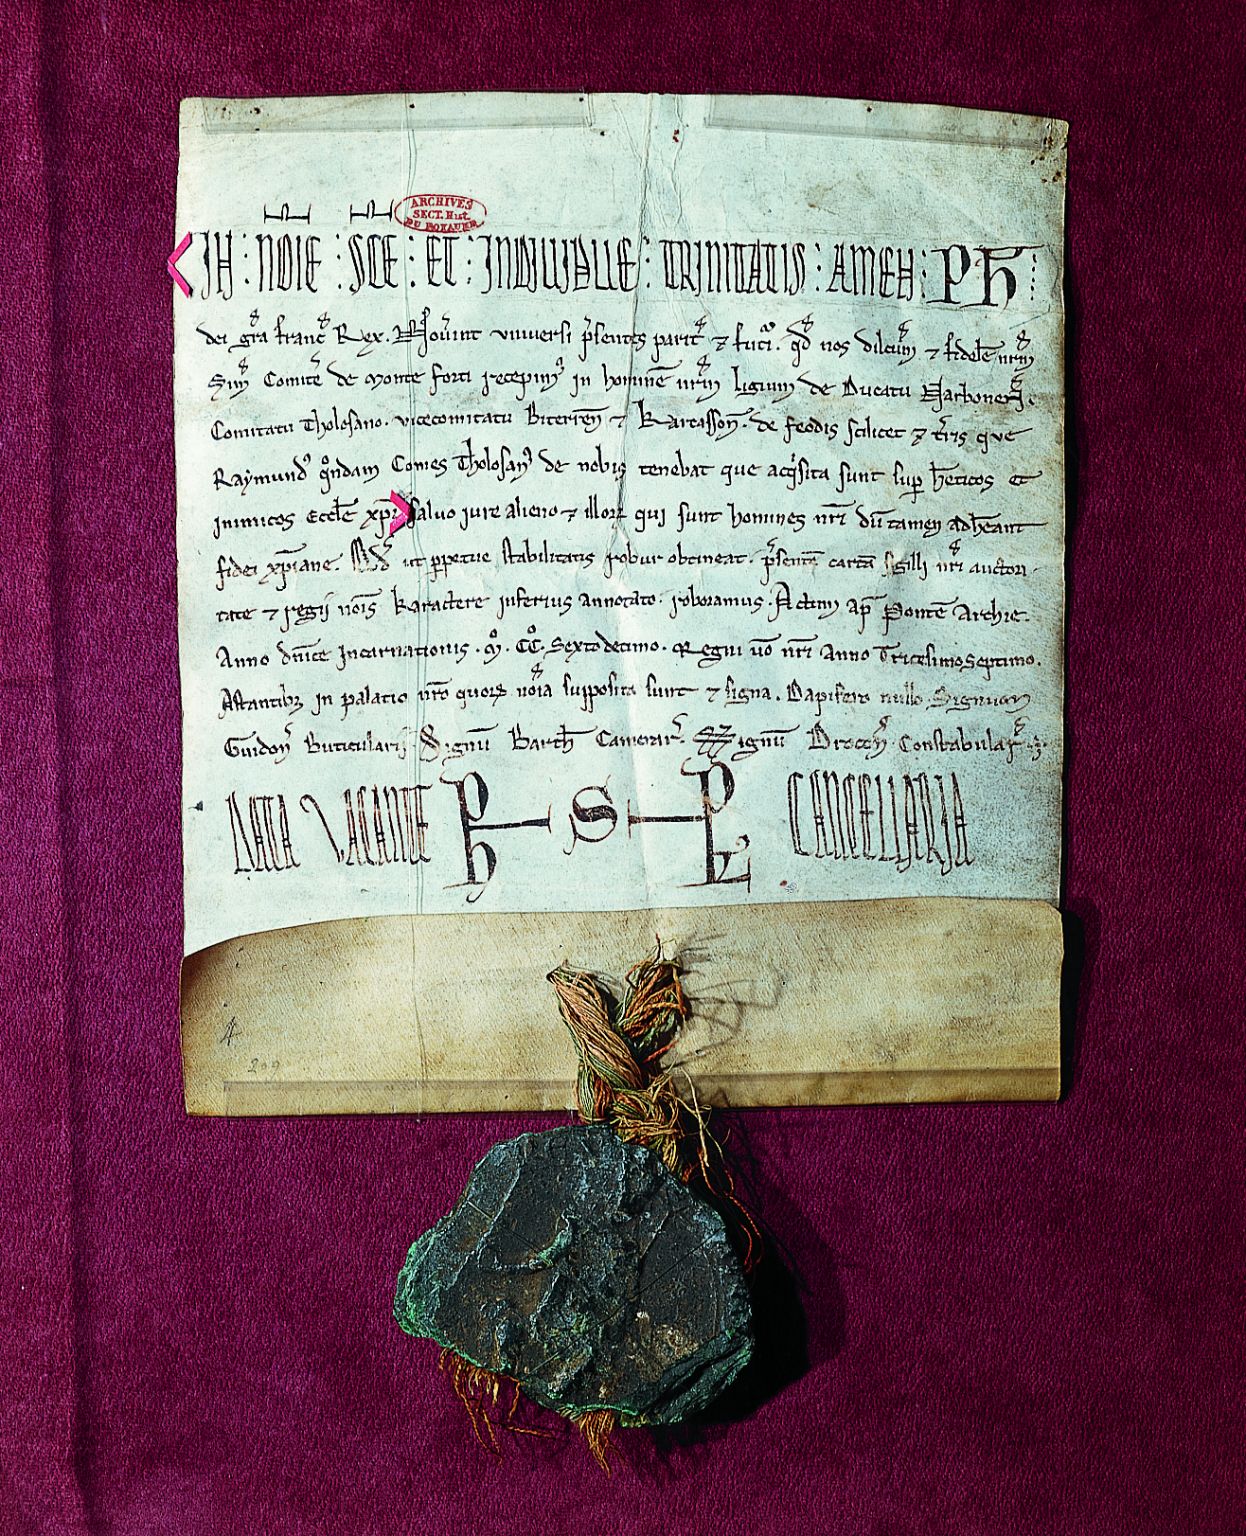 ARCHIVES
SECT. Hist.
DU ROYAUME
IN : NOIE : SCE : ET : INDIVIDUE : TRINITATIS : AMEN : Ph
dei gra franc Rex. Noverint universi psentes parit ⁊ futi. qd nos dilcum ⁊ fidele nrm
Sim Comite de monte forti recepim in homine nrm ligium de Ducatu Narbonen.
Comitatu Tholosano. vicecomitatu Biterren ⁊ Karcasson. de feodis scilicet ⁊ tris que
Raymund qondam Comes Tholosan de nobis tenebat que acqisita sunt sup heticos et
inimicos Eccle xpi salvo iure alieno ⁊ illor qui sunt homines nri du tamen adheant
fidei xpiane. Qd ut ppetue stabilitatis robur obtineat. psente carta sigilli nri auctori-
tate ⁊ regii nois karactere inferius annotato. roboramus. Actum ap Ponte Archie.
Anno dnice Incarnationis. M. CC. Sextodecimo. Regni vo nri Anno Tricesimo Septimo.
Astantib in palatio nro quor noia supposita sunt ⁊ signa. Dapifero nullo. Signum
Guidon Buticularii. Signu Barth Camerar. Signu Drocon Constabular.
DATA VACANTE Ph S PL CANCELLARIA
4
209